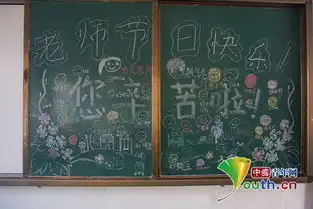 老师节日快乐!
您辛苦啦!
中國青年网
Youth.cn